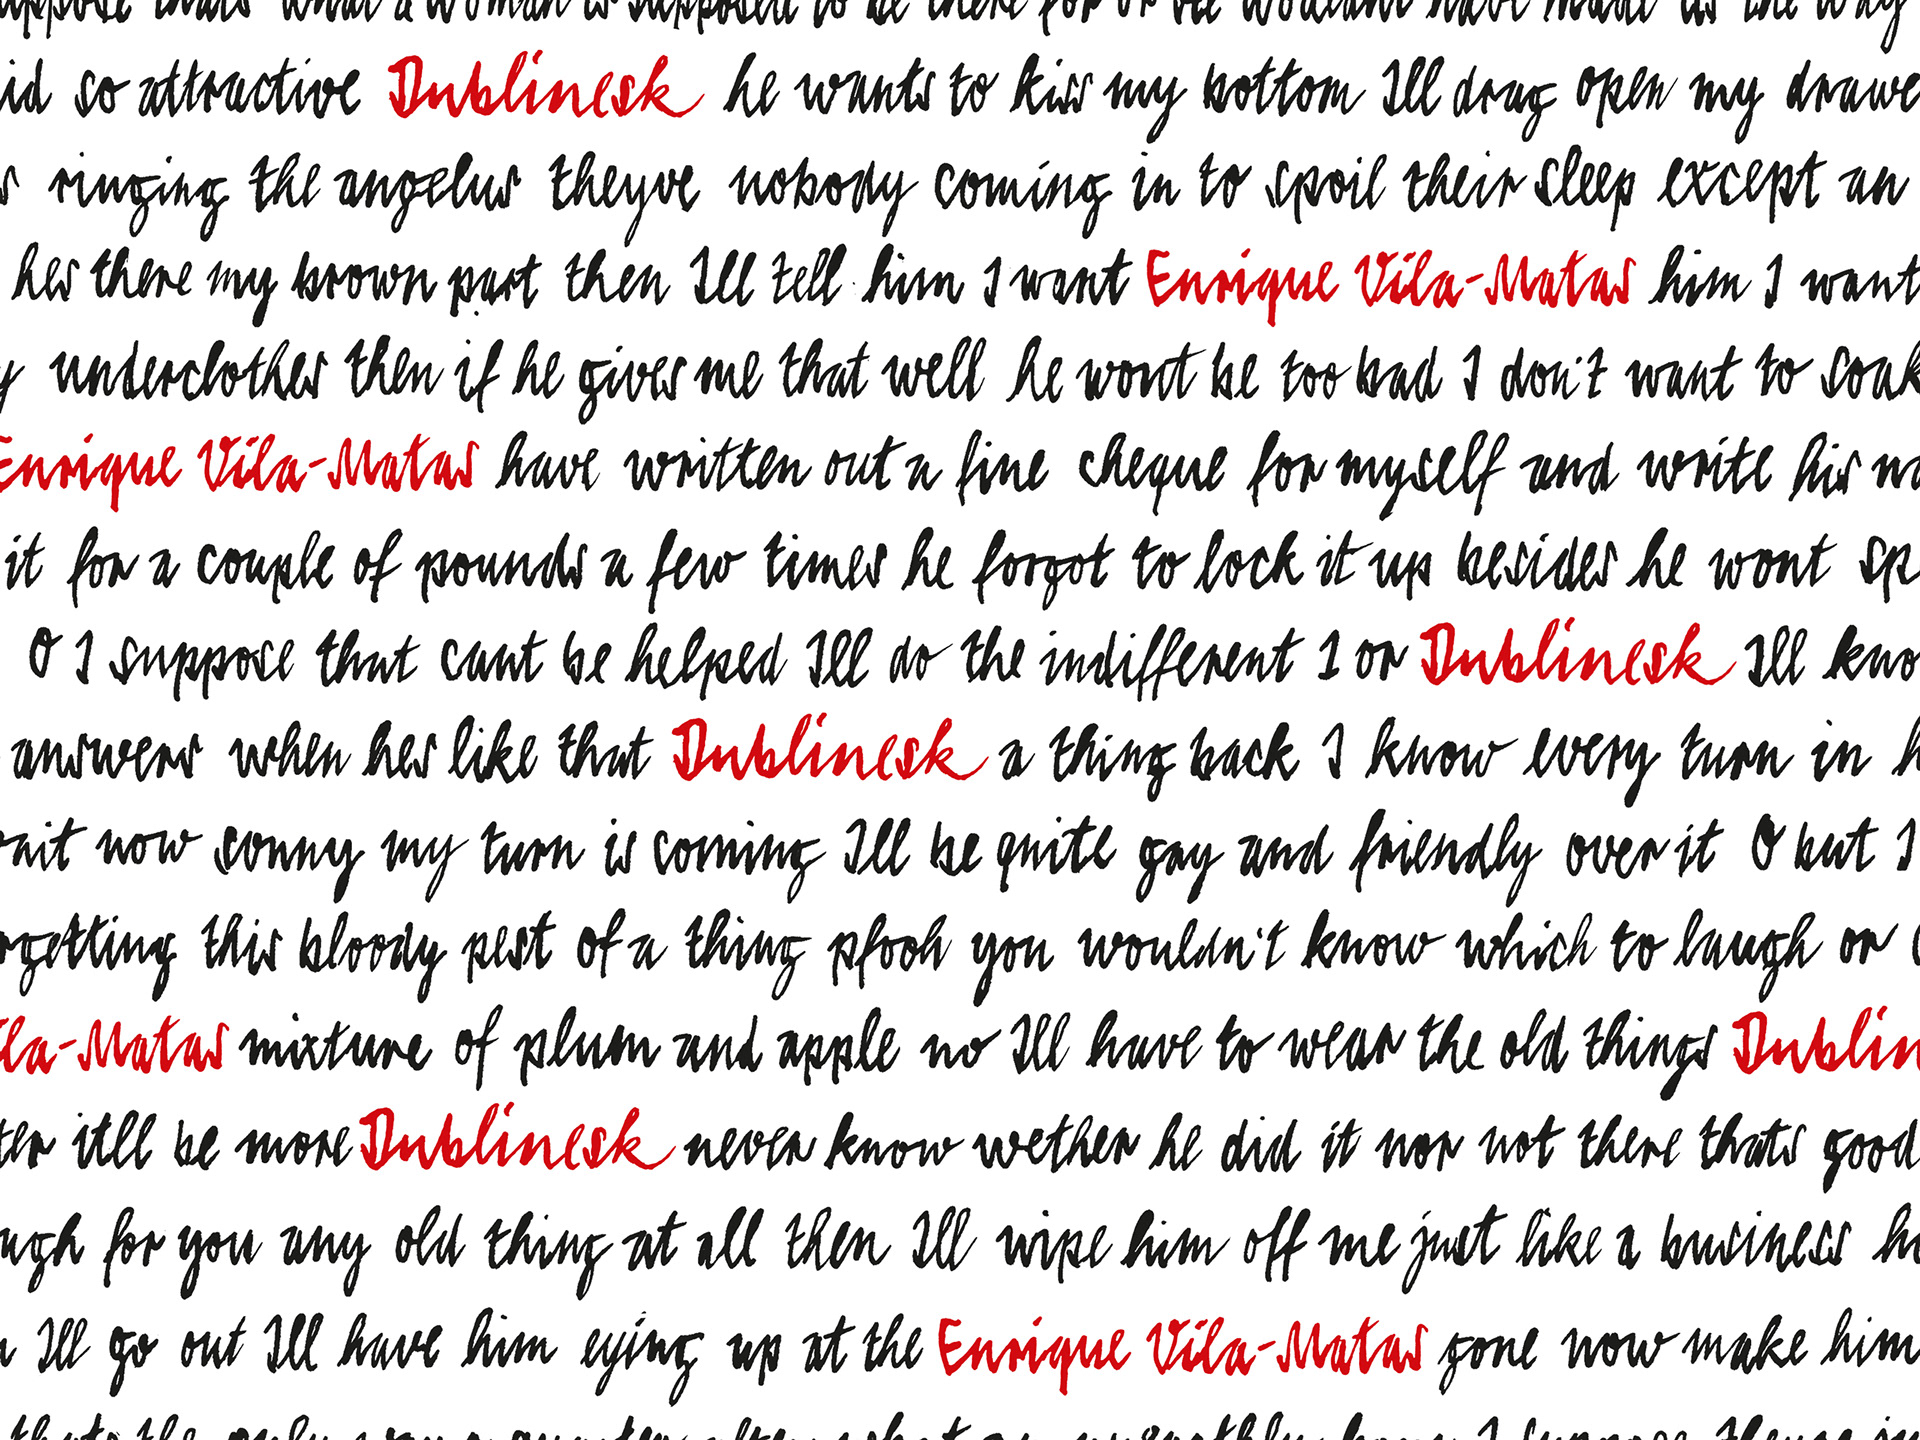 suppose thats what a woman is supposed to be there for or He wouldnt have made us the way
id so attractive Dublinesk he wants to kiss my bottom Ill drag open my drawe
s ringing the angelus theyve nobody coming in to spoil their sleep except an
hes there my brown part then Ill tell him I want Enrique Vila-Matas him I want
y underclothes then if he gives me that well he wont be too bad I don't want to soak
Enrique Vila-Matas have written out a fine cheque for myself and write his na
it for a couple of pounds a few times he forgot to lock it up besides he wont sp
O I suppose that cant be helped Ill do the indifferent 1 or Dublinesk Ill kno
answers when hes like that Dublinesk a thing back I know every turn in h
ait now sonny my turn is coming Ill be quite gay and friendly over it O but I
rgetting this bloody pest of a thing pfooh you wouldn't know which to laugh or c
la-Matas mixture of plum and apple no Ill have to wear the old things Dublin
ter itll be more Dublinesk never know wether he did it nor not there thats good
ugh for you any old thing at all then Ill wipe him off me just like a business he
Ill go out Ill have him eying up at the Enrique Vila-Matas gone now make him
thats the only way a quarter after what an unearthly hour I suppose theyre in